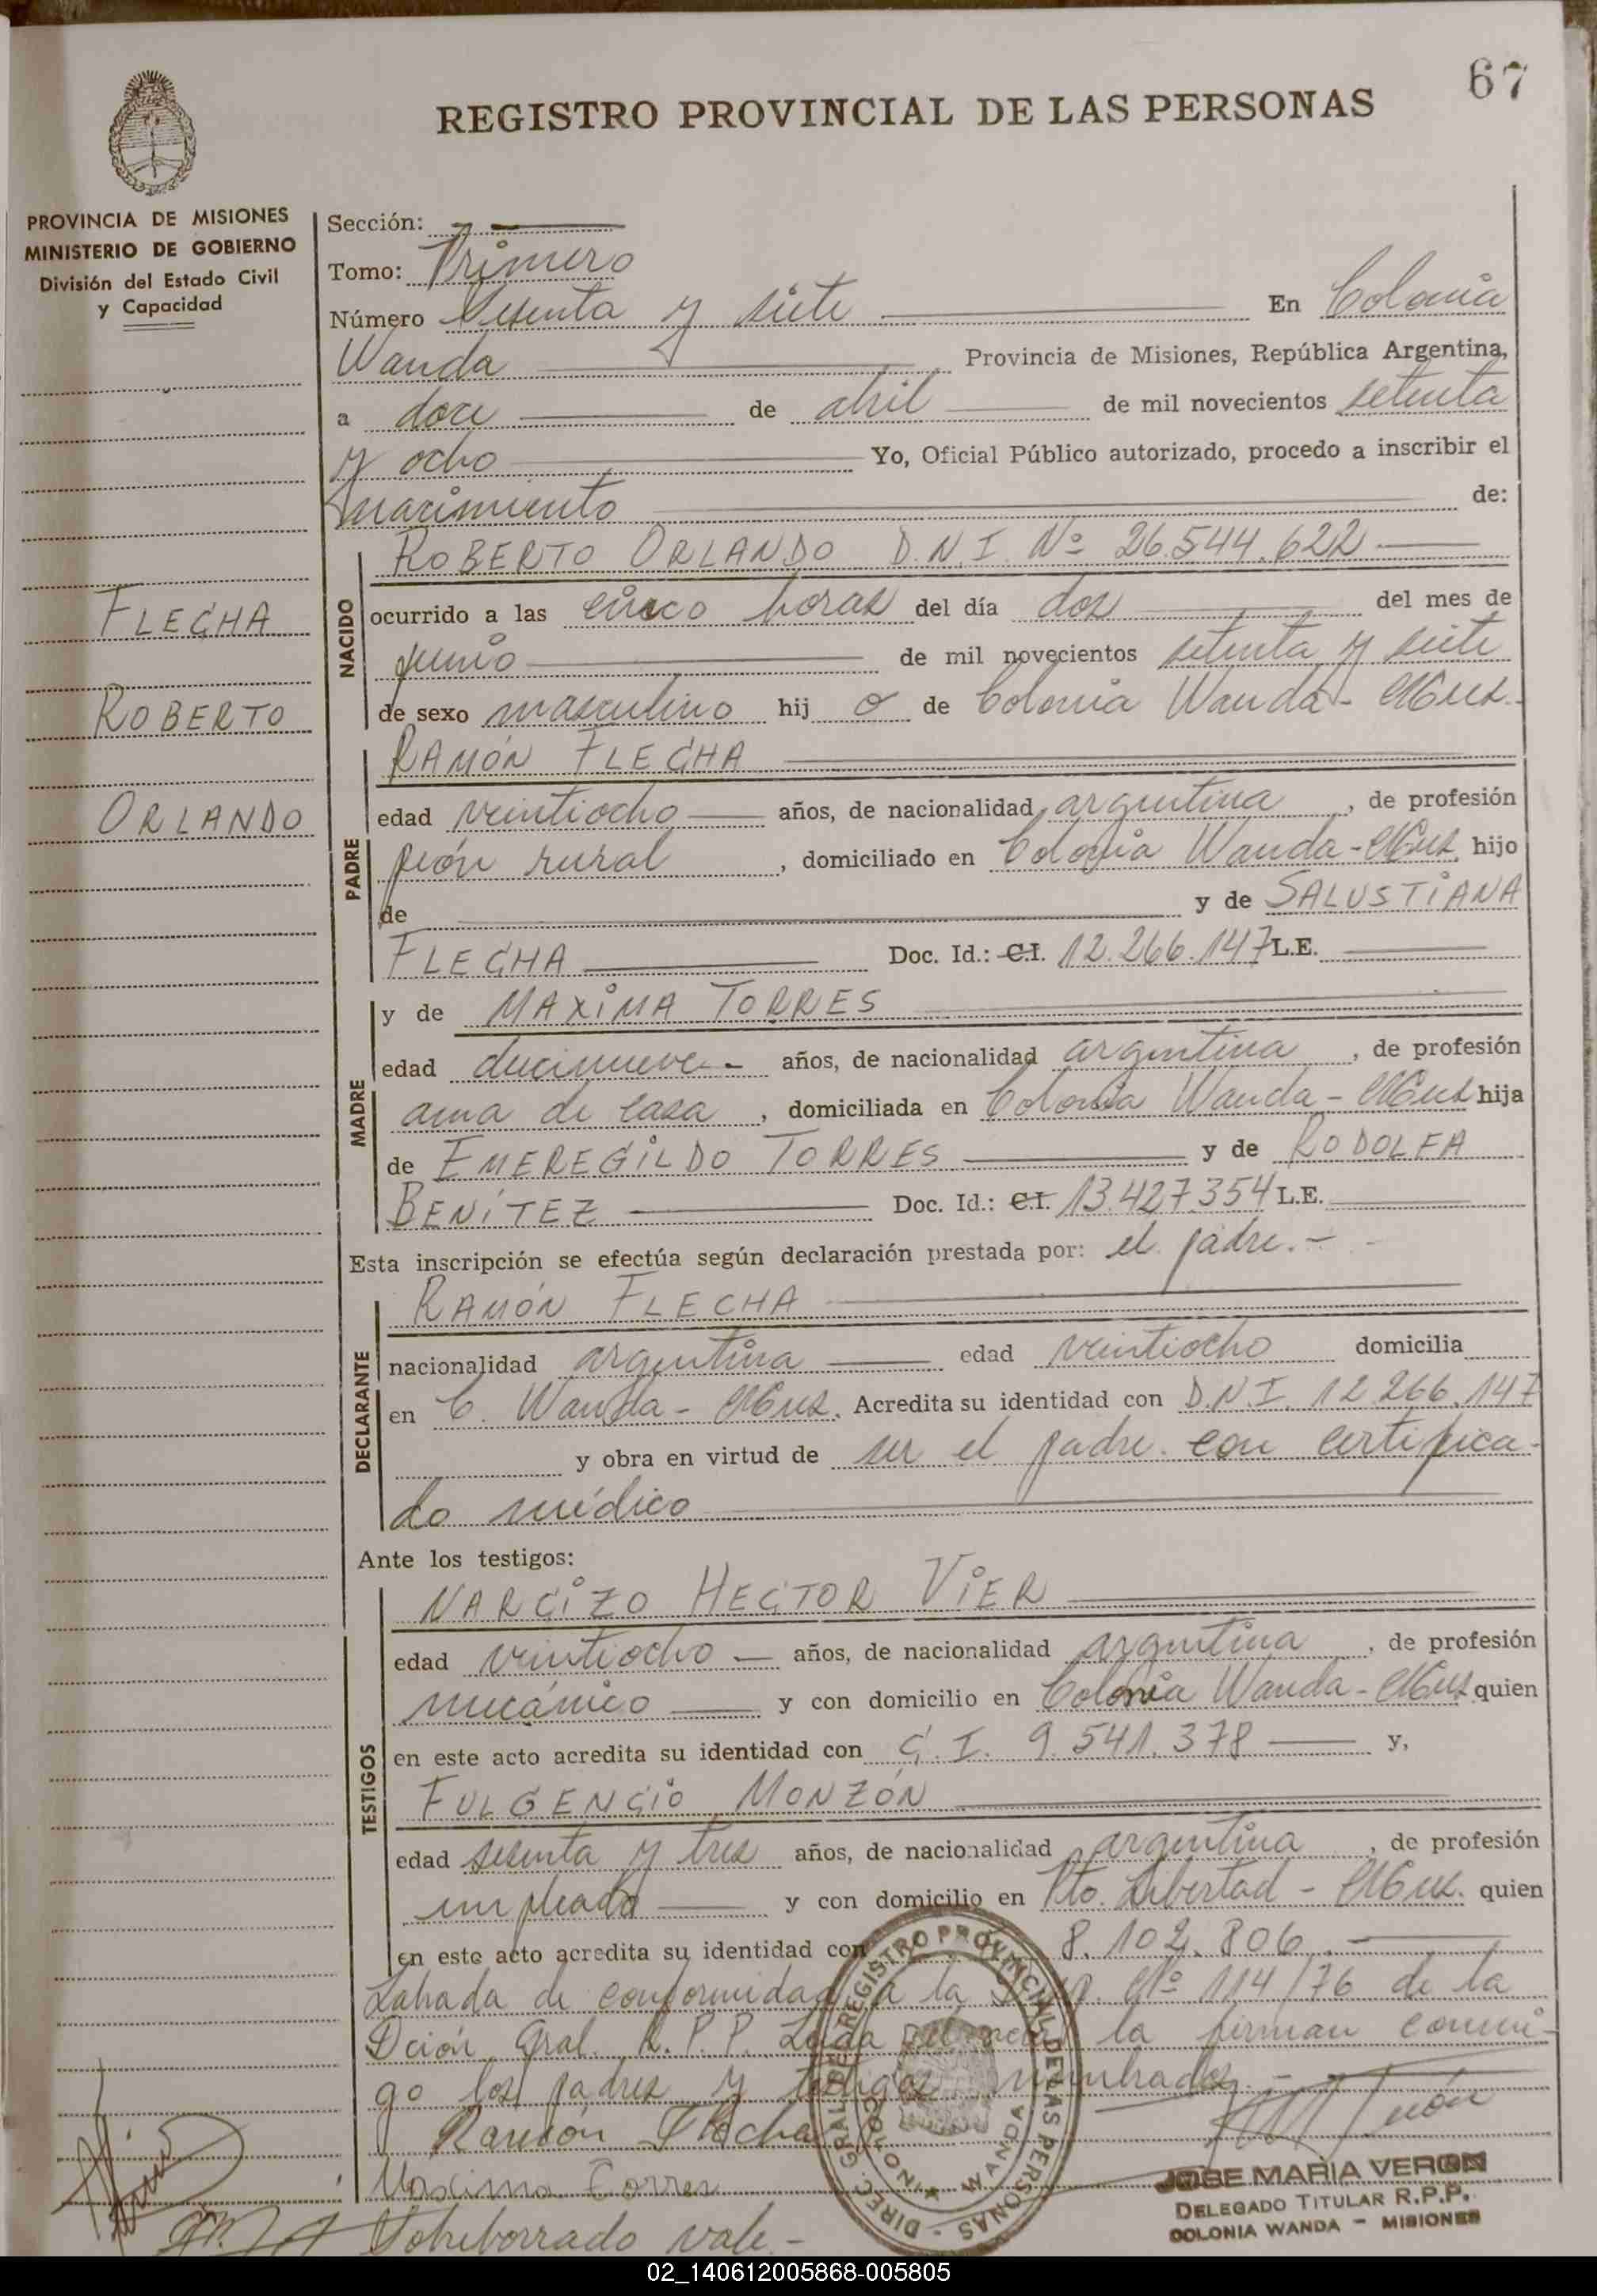 67
REGISTRO PROVINCIAL DE LAS PERSONAS
PROVINCIA DE MISIONES
MINISTERIO DE GOBIERNO
División del Estado Civil
y Capacidad
FLECHA
ROBERTO
ORLANDO
Sección:
Tomo: Primero
Número Sesenta y siete En Colonia
Wanda Provincia de Misiones, República Argentina,
a doce de abril de mil novecientos setenta
y ocho Yo, Oficial Público autorizado, procedo a inscribir el
nacimiento de:
NACIDO
ROBERTO ORLANDO D.N.I. Nº 26.544.622
ocurrido a las cinco horas del día dos del mes de
junio de mil novecientos setenta y siete
de sexo masculino hij o de Colonia Wanda - Mnes.
PADRE
RAMÓN FLECHA
edad veintiocho años, de nacionalidad argentina, de profesión
peón rural, domiciliado en Colonia Wanda - Mnes. hijo
de y de SALUSTIANA
FLECHA Doc. Id.: C.I. 12.266.147 L.E.
MADRE
y de MAXIMA TORRES
edad diecinueve - años, de nacionalidad argentina, de profesión
ama de casa, domiciliada en Colonia Wanda - Mnes hija
de EMEREGILDO TORRES y de RODOLFA
BENÍTEZ Doc. Id.: C.I. 13.427.354 L.E.
Esta inscripción se efectúa según declaración prestada por: el padre. -
DECLARANTE
RAMÓN FLECHA
nacionalidad argentina edad veintiocho domicilia
en C. Wanda - Mnes. Acredita su identidad con D.N.I. 12.266.147
y obra en virtud de ser el padre con certifica-
do médico
Ante los testigos:
TESTIGOS
NARCIZO HECTOR VIER
edad veintiocho años, de nacionalidad argentina, de profesión
mecánico y con domicilio en Colonia Wanda - Mnes quien
en este acto acredita su identidad con C.I. 9.541.378 y,
FULGENCIO MONZÓN
edad sesenta y tres años, de nacionalidad argentina, de profesión
empleado y con domicilio en Pto. Libertad - Mnes. quien
en este acto acredita su identidad con 8.102.806.
Labrada de conformidad a la Nº 114/76 de la
Dción Gral. R.P.P. Leída el acta la firman conmi-
go los padres y testigos nombrados. -
Ramón Flecha
Maxima Torres
Sobreborrado vale. -
DIREC. GRAL. DE REGISTRO PROVINCIAL DE LAS PERSONAS
WANDA
JOSE MARIA VERON
DELEGADO TITULAR R.P.P.
COLONIA WANDA - MISIONES
02_140612005868-005805